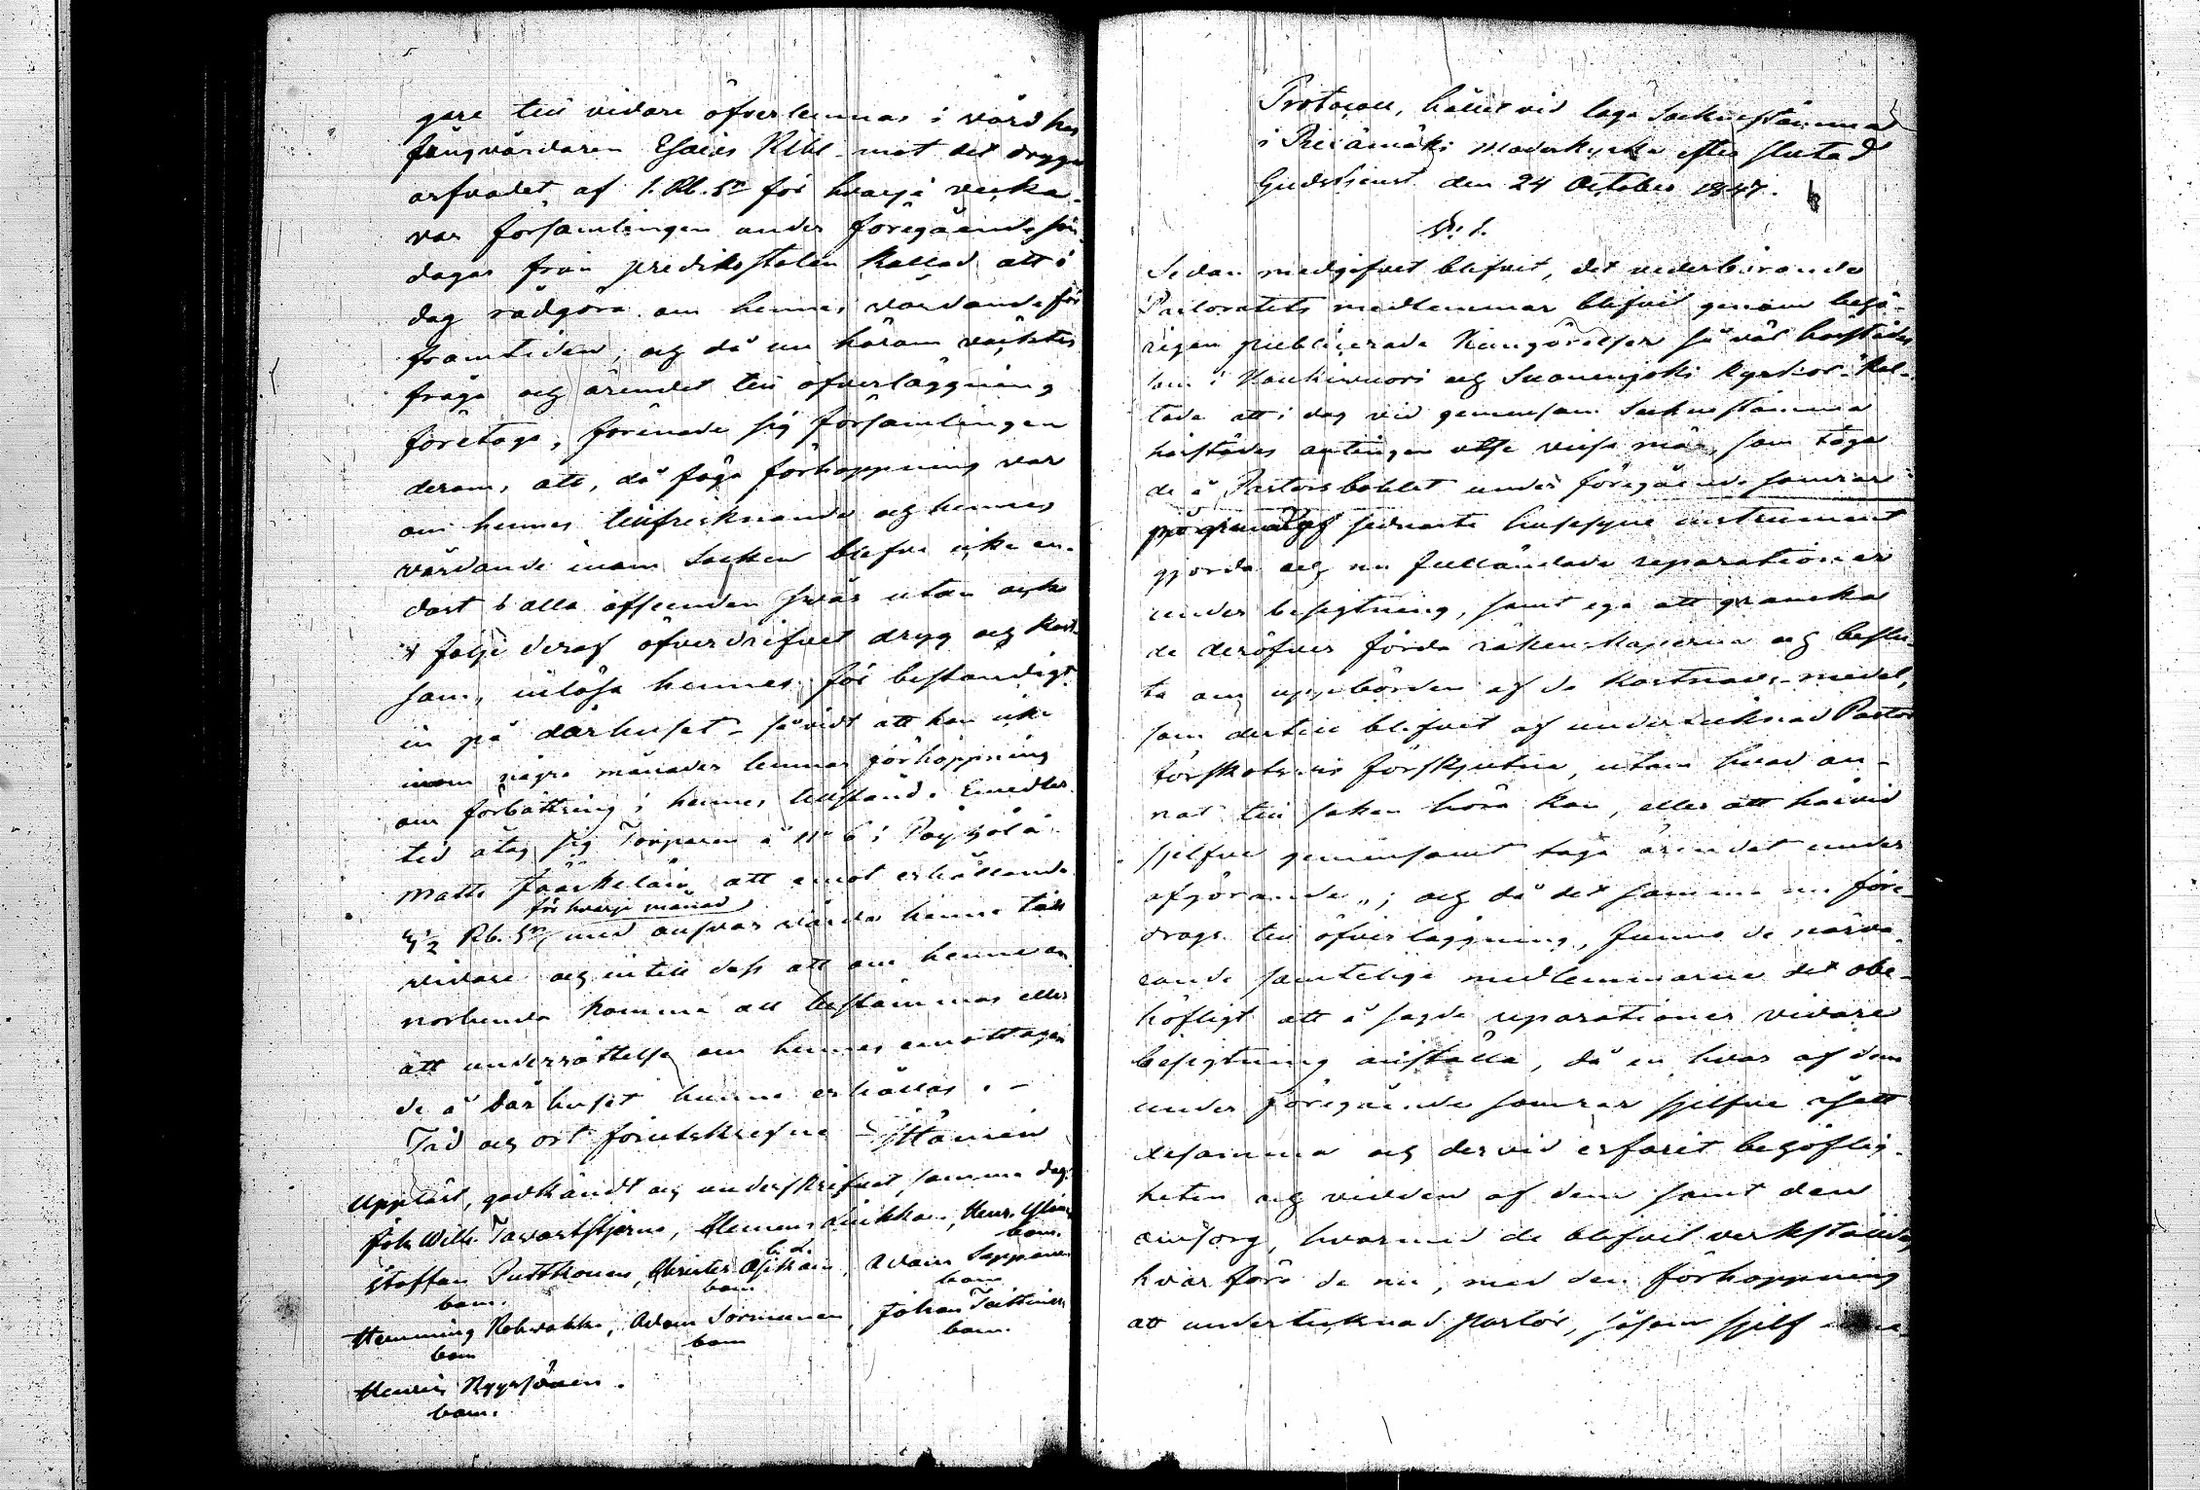 gare till vidare öfverlemnas i vård hos
fångvårdaren Esaias mot det dryga
arfvodet af 1. Rb. Sr för hvarje vecka
var församlingen under föregående sön-
dagar från predikstolen kallad att i
dag rådgöra om hennes vårdande för
framtiden, och då nu härom väcktes
fråga och ärendet till öfverläggning
företogs, förenade sig församlingen
derom, att, då föga förhoppning var
om hennes tillfrisknande och hennes
vårdande inom Socken blefve icke en-
dast i alla afseenden svår utan ock
i följe deraf öfverdrifvet dryg och kost-
sam, inlösa hennes för beständigt
in på dårhuset, såvidt att hon icke
inom några månader lemnar förhoppning
om förbättring i hennes tillstånd. Emedler
tid åtog sig Torparen å No 6 i
Matts Jääskeläin att emot erhållande
för hvarje månad
4½ Rb. Sr, med ansvar vårda henne till
vidare och intill dess att om henne an
norlunda komma att bestämmas eller
att underrättelse om hennes emottagan
de å Dårhuset hunne erhållas. -
Tid och ort förutskrefne
Uppläst, godkändt och underskrifvet, samma dag.
Joh. Wilh. Tawaststjerna, Clemens Henr.
Staffan Putkonen, Christer Adam Seppänen
bom. bom. bom.
Hemming Adam Sormunen, Johan
bom bom bom.
Henric
bom.
Protocoll, hållit vid laga Sockenstämma
i Pieksämäki moderkyrka efter slutad
Gudstienst den 24 October 1847.
§. 1.
Sedan medgifvet blifvit, det vederbörande
Pastoratets medlemmar blifvit genom behö-
rigen publicerade Kungörelser så väl härstädes
som i Haukivuori och Suonenjoki kyrkor kal-
lade att i dag vid gemensam Sockenstämma
härstädes antingen utse vissa män, som taga
de å Pastorsbohlet under föregående somrar
på grund af sednaste husesyne instrument
gjorda och nu fulländade reparationer
under besigtning, samt ega att granska
de deröfver förda räkenskaperna och beslu-
ta om uppbörden af de kostnads-medel,
som dertill blifvit af undertecknad Pastor
förskotsvis förskjutna, utom hvad an-
nat till saken höra kan, eller att härvid
sjelfve gemensamt taga ärendet under
afgörande"; och då det samma nu före-
drogs till öfverläggning, funno de närva-
rande samtelige medlemmarne det obe-
höfligt att å sagde reparationer vidare
besigtning anställa, då en hvar af dem
under föregående somrar sjelfve
desamma och dervid erfarit behöflig-
heten och vidden af dem samt den
omsorg, hvarmed de blifvit verkställde,
hvarföre de nu, med den förhoppning
att undertecknad Pastor, såsom sjelf